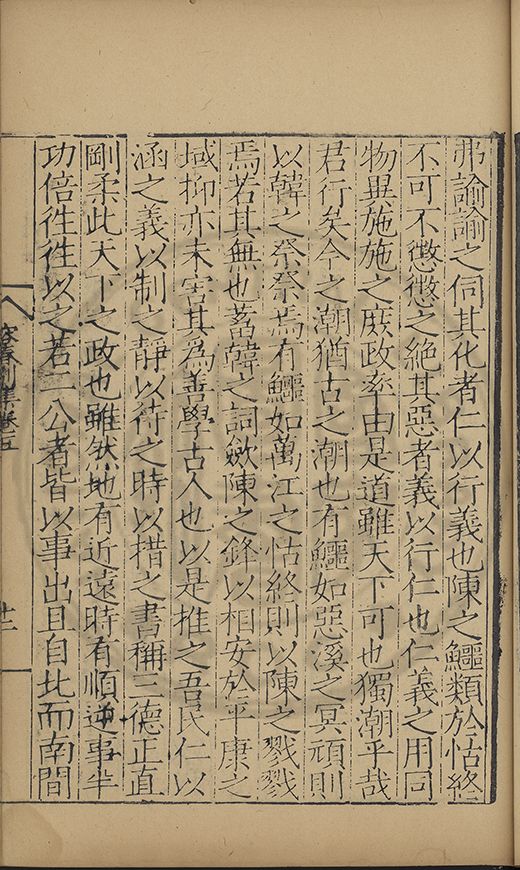 弗諭諭之伺其化者仁以行義也陳之鱷類於怙終
不可不懲懲之絶其惡者義以行仁也仁義之用同
物異施施之庶政率由是道雖天下可也獨潮乎哉
君行矣今之潮猶古之潮也有鱷如惡溪之冥頑則
以韓之祭祭焉有鱷如萬江之怙終則以陳之戮戮
焉若其無也蓄韓之詞斂陳之鋒以相安於平康之
域抑亦未害其為善學古人也以是推之吾民仁以
涵之義以制之靜以待之時以措之書稱三德正直
剛柔此天下之政也雖然地有近遠時有順逆事半
功倍徃徃以之若二公者皆以事出且自此而南間
卷五